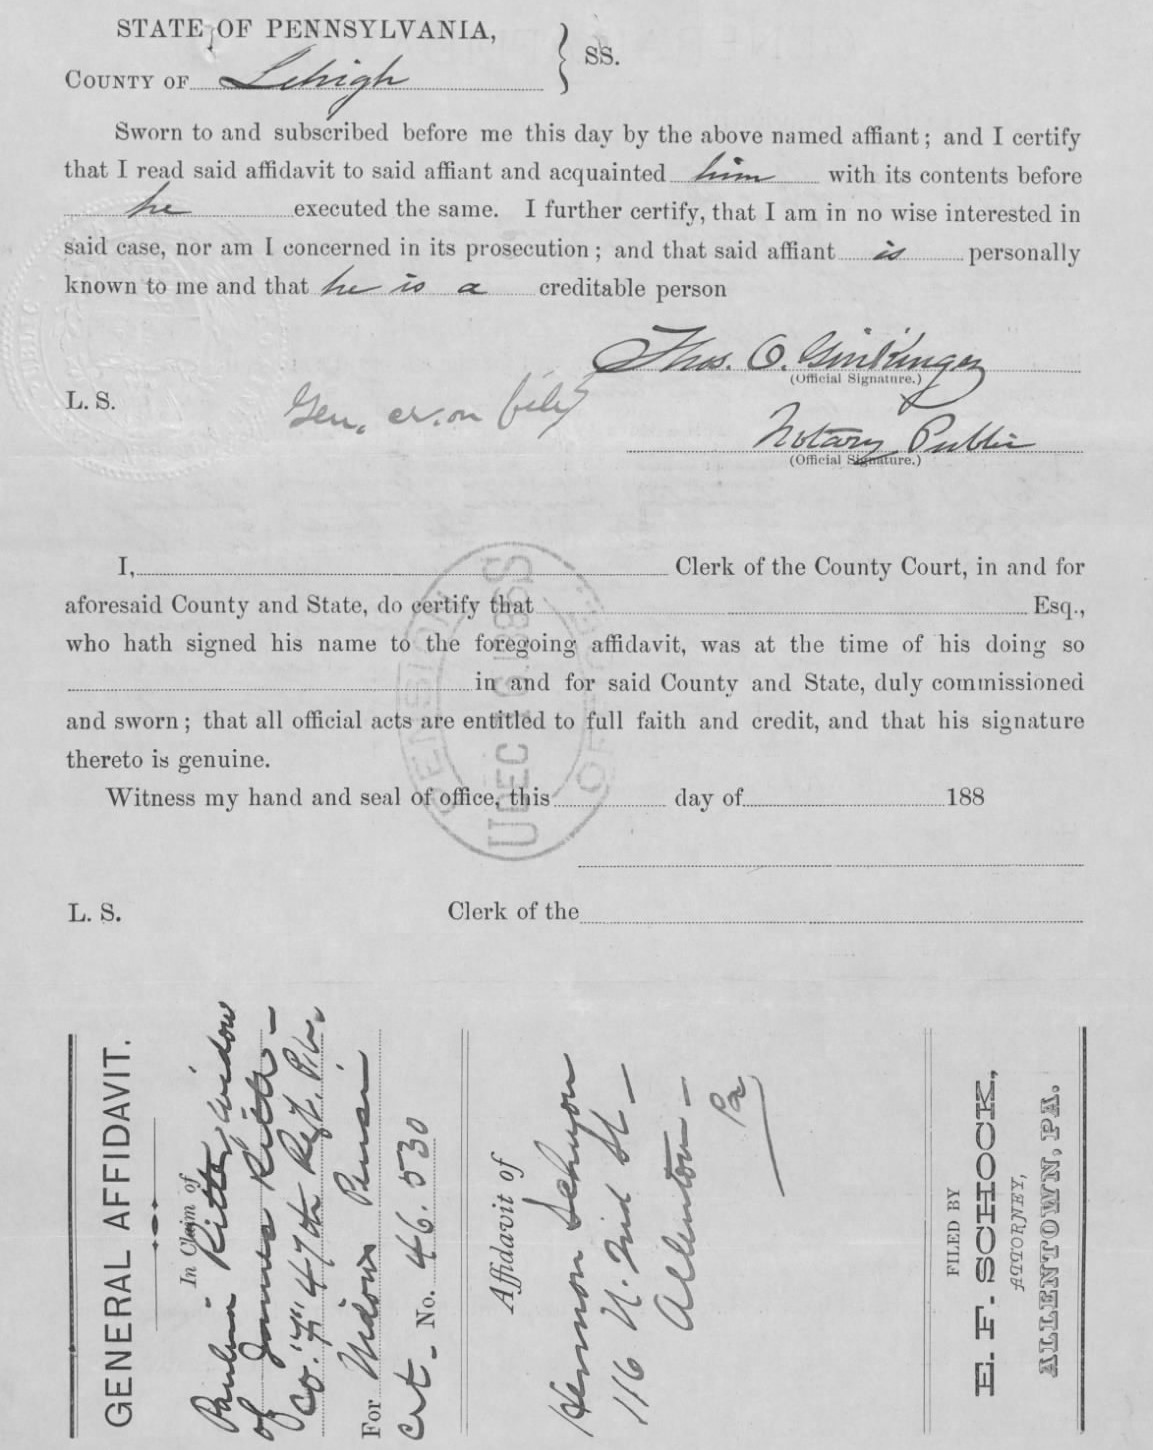 STATE OF PENNSYLVANIA,
COUNTY OF Lehigh } SS.
Sworn to and subscribed before me this day by the above named affiant; and I certify
that I read said affidavit to said affiant and acquainted him with its contents before
he executed the same. I further certify, that I am in no wise interested in
said case, nor am I concerned in its prosecution; and that said affiant is personally
known to me and that he is a creditable person
Thos. O. Ginkinger
(Official Signature.)
L. S.
Gen. er. on file
Notary Public
(Official Signature.)
I, Clerk of the County Court, in and for
aforesaid County and State, do certify that Esq.,
who hath signed his name to the foregoing affidavit, was at the time of his doing so
in and for said County and State, duly commissioned
and sworn; that all official acts are entitled to full faith and credit, and that his signature
thereto is genuine.
Witness my hand and seal of office, this day of 188
L. S. Clerk of the
PENSION OFFICE
U.S.
DEC
GENERAL AFFIDAVIT.
In Claim of
Paulina Ritter, widow
of James Ritter
Co. 47th Regt. P.V.
For Widows Pension
Crt. No. 46.530
Affidavit of
Hermon Schuyon
116 N. 2nd St
Allentown
Pa
FILED BY
E. F. SCHOCK,
ATTORNEY,
ALLENTOWN, PA.